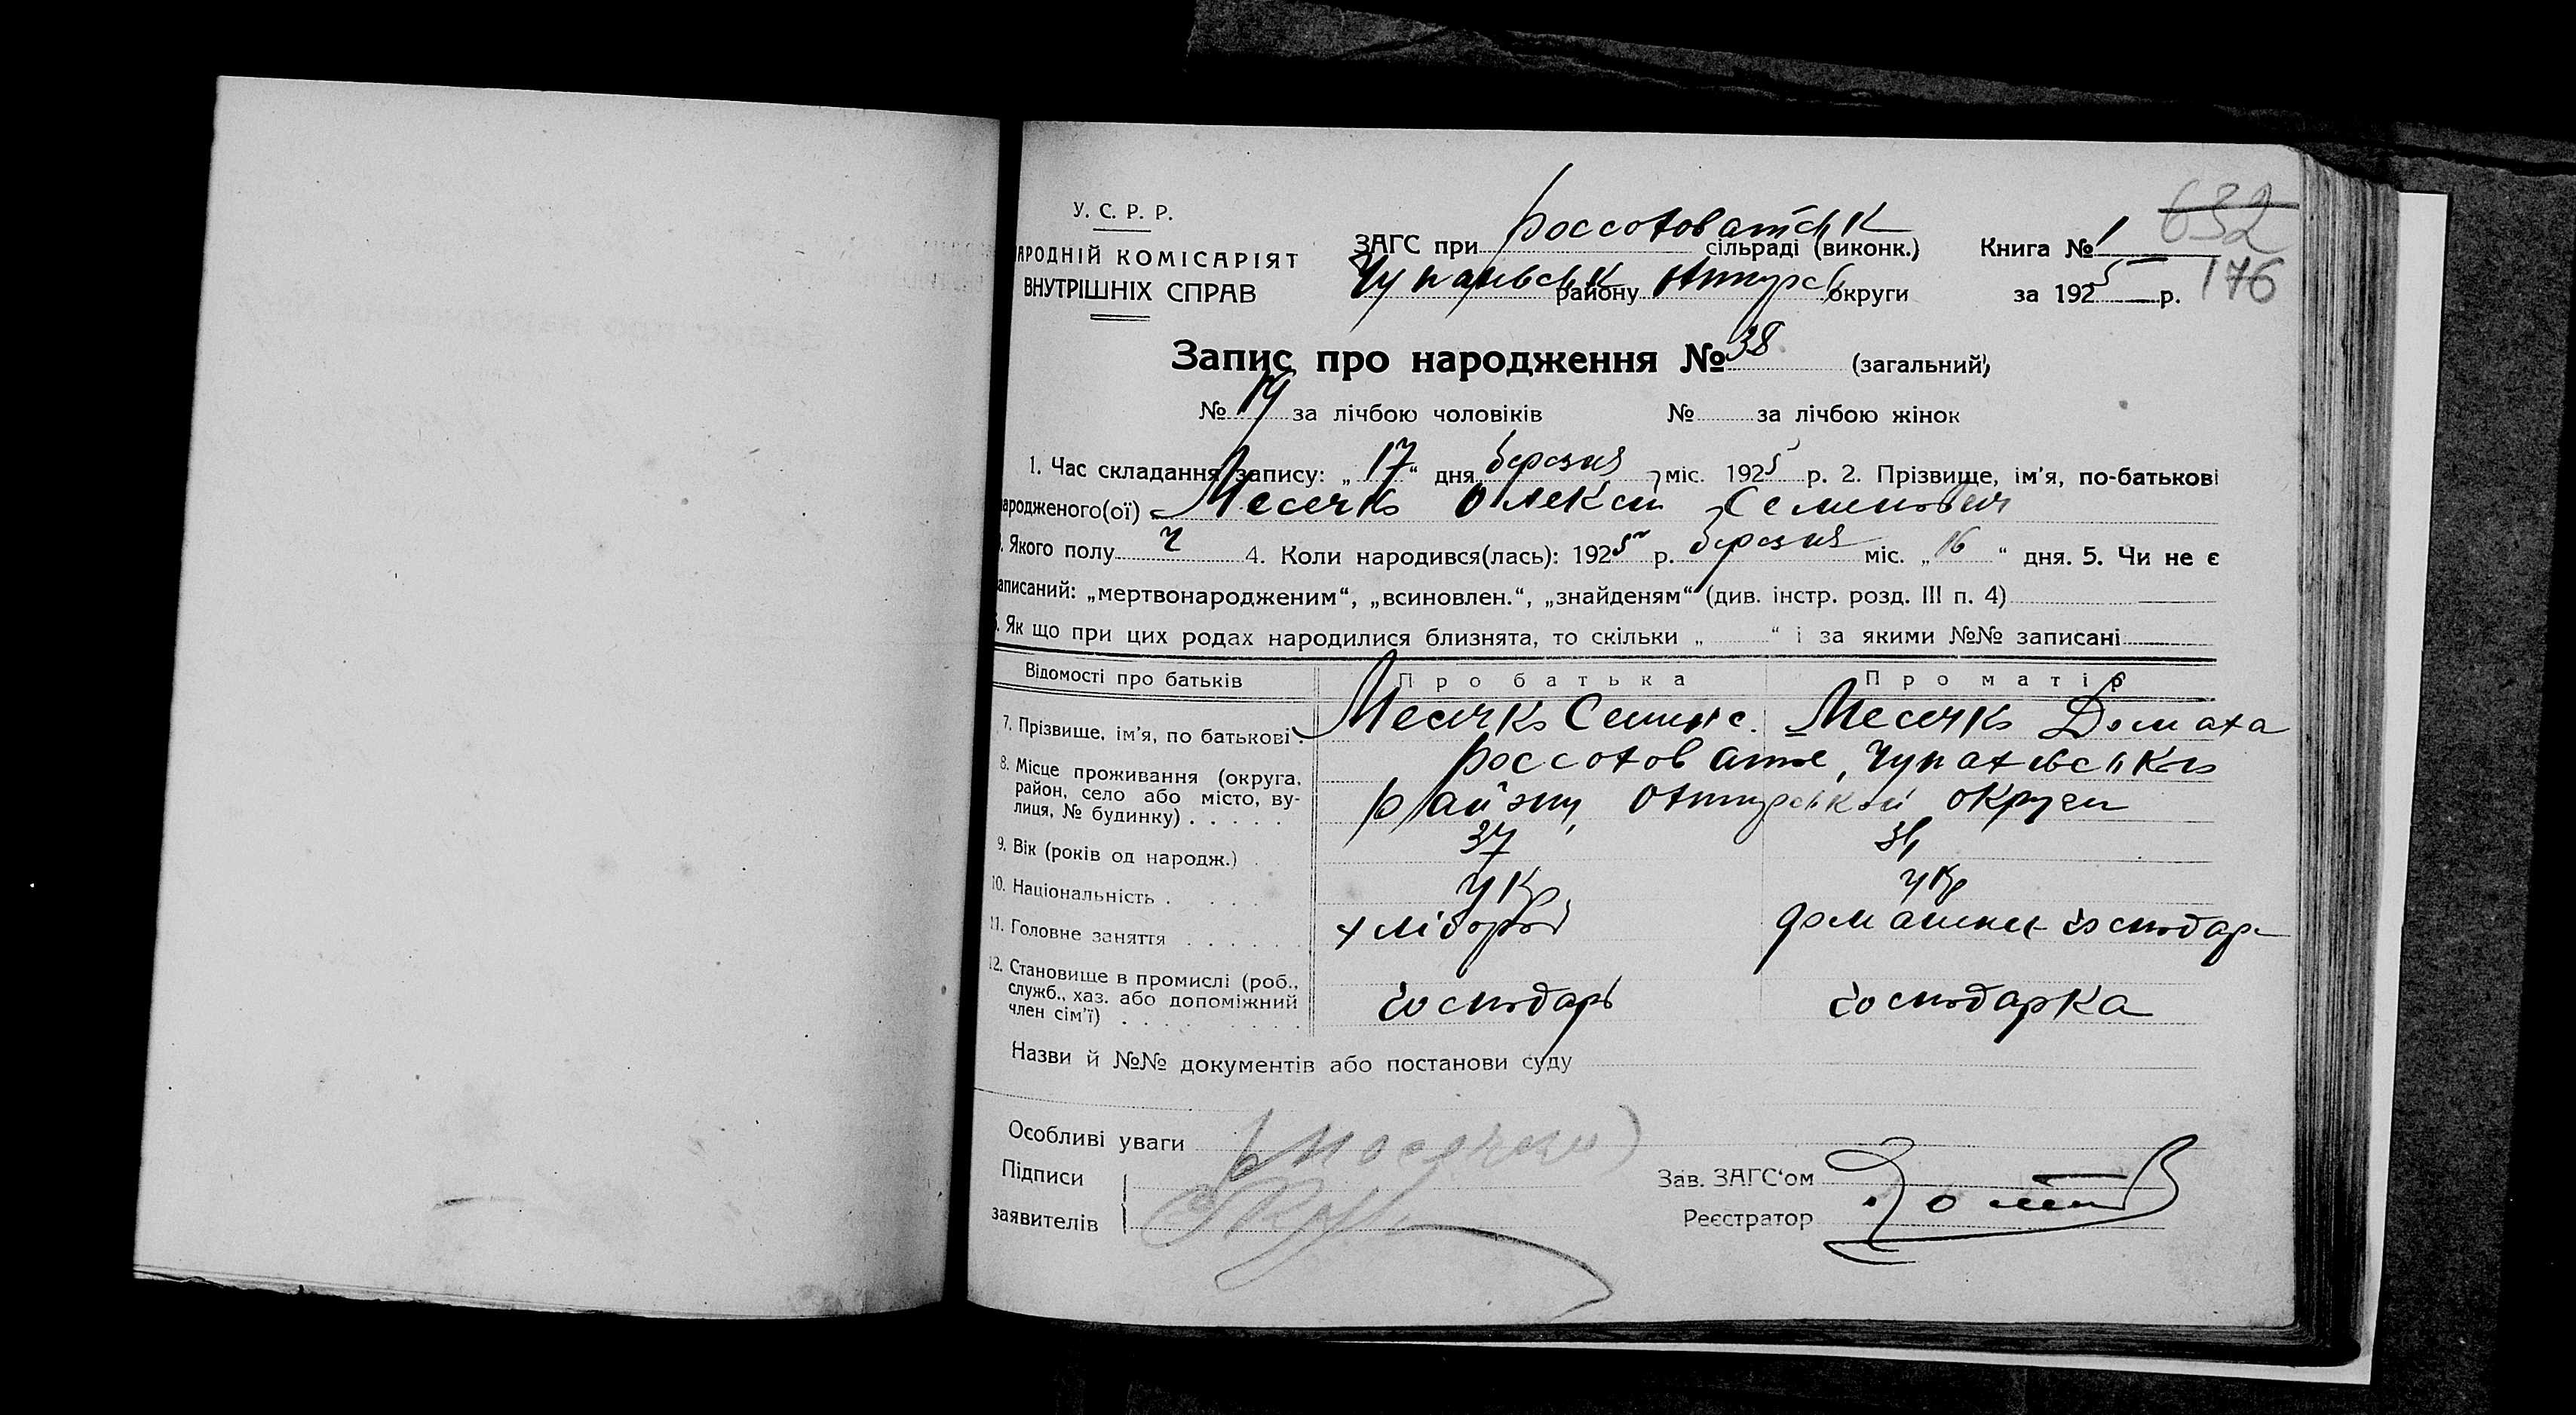 632
176
У. С. Р. Р.
АРОДНІЙ КОМІСАРІЯТ
ВНУТРІШНІХ СПРАВ
ЗАГС при Россоховатськ сільраді (виконк.) Книга № 1
Чупахівськ району Охтирськ округи за 1925 р.
Запис про народження № 38 (загальний)
№ 19 за лічбою чоловіків № за лічбою жінок
1. Час складання запису: „ 17 “ дня березня міс. 1925 р. 2. Прізвище, ім’я, по-батькові
ародженого(ої) Месечко Олексій Семенович
. Якого полу ч 4. Коли народився(лась): 1925 р. березня міс. „ 16 “ дня. 5. Чи не є
аписаний: „мертвонародженим“, „всиновлен.“, „знайденям“ (див. інстр. розд. III п. 4)
. Як що при цих родах народилися близнята, то скільки „ “ і за якими №№ записані
Відомості про батьків Про батька Про матір
7. Прізвище, ім’я, по батькові . Месечко Семен С. Месечко Домаха
8. Місце проживання (округа, район, село або місто, ву-
лиця, № будинку) . . . . . Россоховате, Чупахівського
району, Охтирської округи
9. Вік (років од народж.) . 37
10. Національність . . . . Укр Укр
11. Головне заняття . . . . . . хлібороб домашнє господар
12. Становище в промислі (роб.,
служб., хаз. або допоміжний
член сім’ї) . . . . . . . . . господарь господарка
Назви й №№ документів або постанови суду
Особливі уваги
Підписи
заявителів
Зав. ЗАГС‘ом
Реєстратор